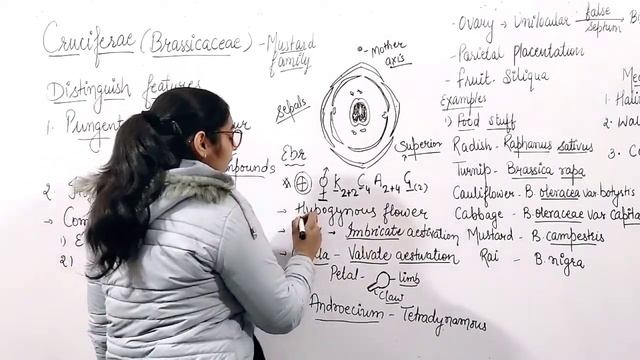 Cruciferae (Brassicaceae) - Mustard family
Distinguish features
1. Pungent
2.
1)
2)
Mother axis
Sepals
Superior
Ebr
⊕ K2+2 C4 A2+4 G(2)
→ Hypogynous flower
→ Imbricate aestivation
→ Valvate aestivation
Petal - limb
claw
Androecium - Tetradynamous
- Ovary → Unilocular false septum Bi
- Parietal placentation
- Fruit - Siliqua
Examples
1) Food stuff
Radish - Raphanus sativus
Turnip - Brassica rapa
Cauliflower - B. oleracea var. botystis
Cabbage - B. oleraceae var capita
Mustard - B. campestris
Rai - B. nigra
1. Hali
2. Wal
3.